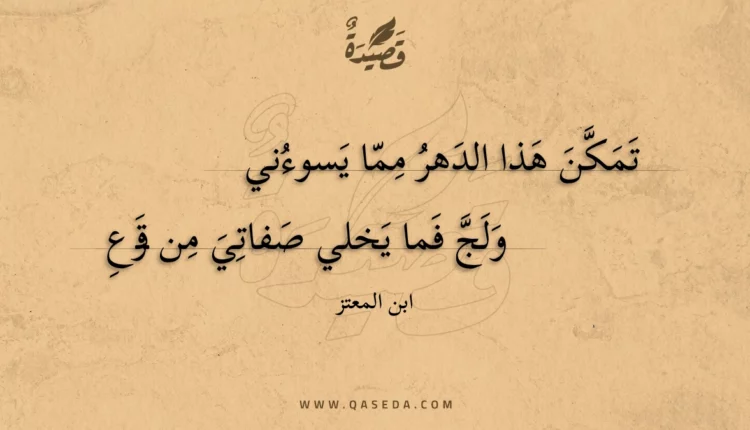 قَصِيْدَةٌ
تَمَكَّنَ هَذا الدَهرُ مِمّا يَسوءُني
وَلَجَّ فَما يَخلي صَفاتِيَ مِن قَرعِ
ابن المعتز
WWW.QASEDA.COM